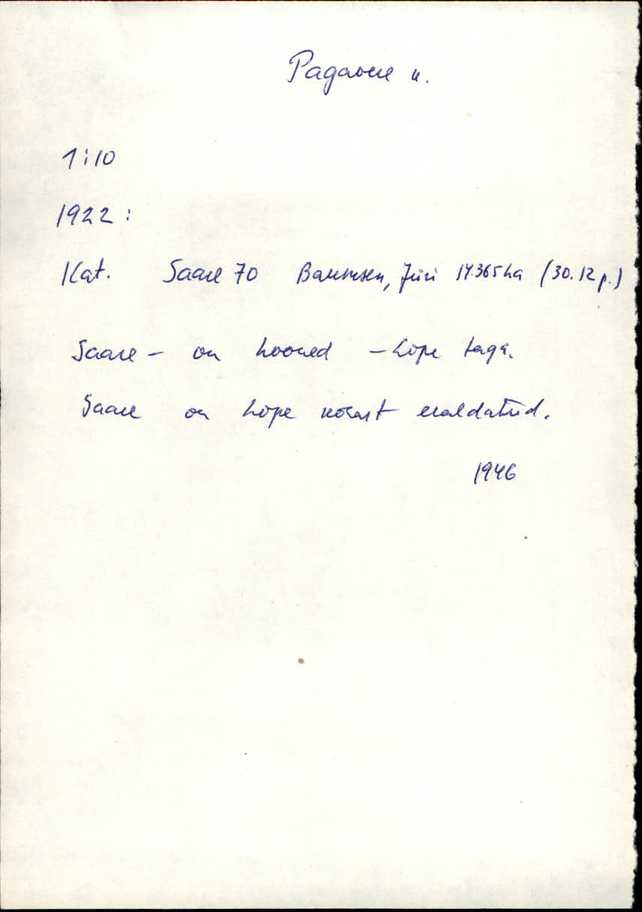 Pagaoue k.
1:10
1922:
Kat. Saare 70 Baumsen, Jüri 14365ha (30.12 p.)
Saare – on hooned – Lõpe taga.
Saare on Lõpe eraldatud.
1946